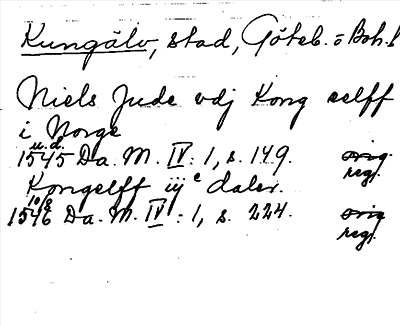 Kungälv, stad, Göteb. o Boh. l
Niels Jude vdj Kong eelff
i Norge
u. d.
1545 Da. M. IV: 1, s. 149. orig.
reg.
Kongelff iij c daler.
10/8
1546 Da. M. IV: 1, s. 224. orig
reg.